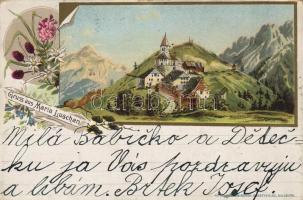 Gruss aus Maria Luschari
Milá Babičko a Dědeč-
ku ja Vás pozdravuju
a líbám. Brtek Josef.